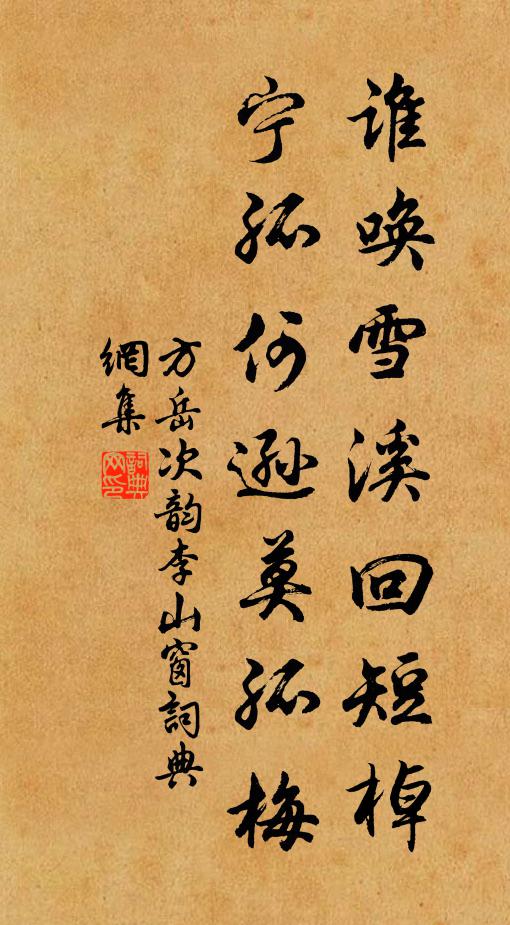 谁唤雪溪回短棹
宁孤何逊莫孤梅
方岳次韵李山窗詞典
網集
詞典网印